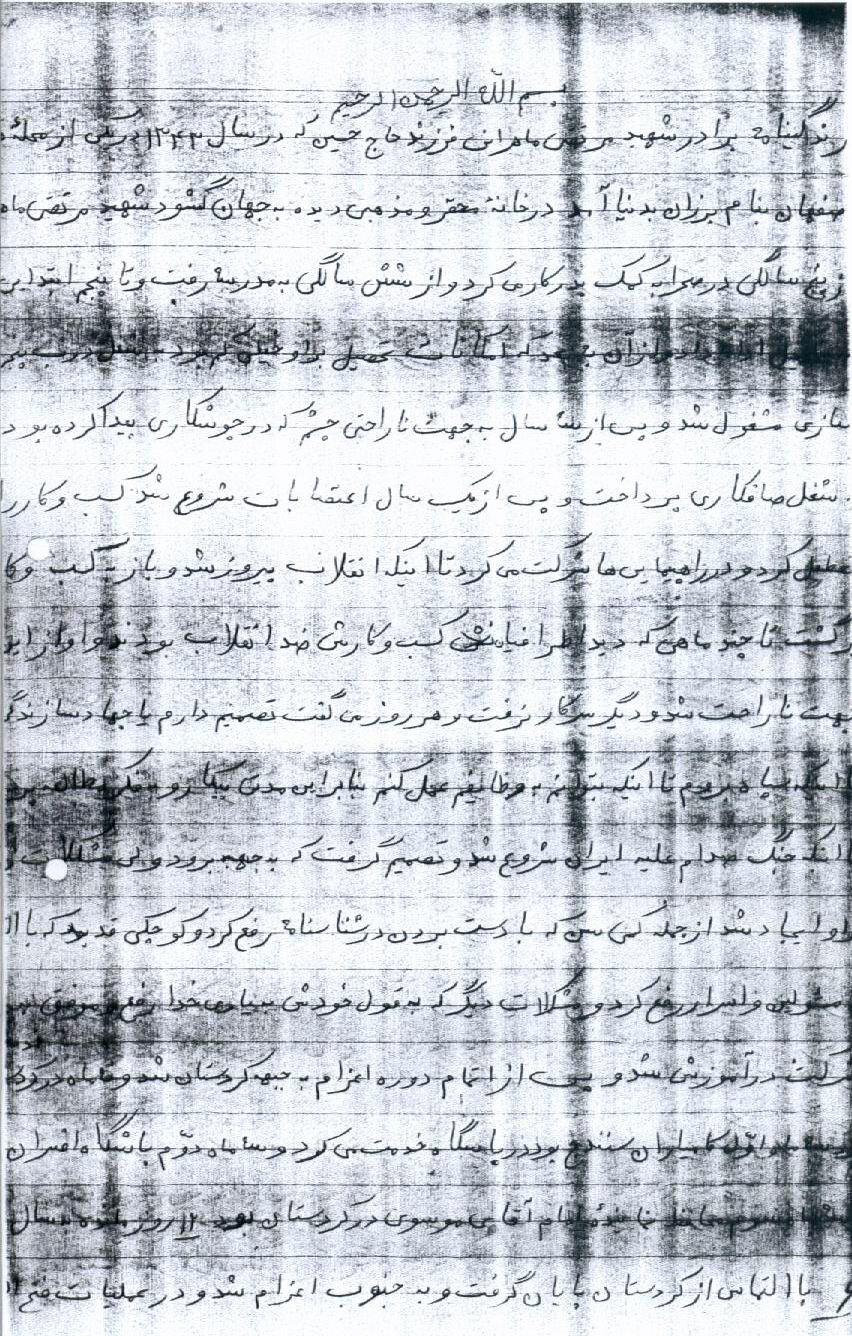 بسم الله الرحمن الرحیم
زندگینامه برادر شهید مرتضی ماهرانی فرزند حاج حسین که در سال ۱۳۴۳ در یکی از محله
صفهان بنام برزان بدنیا آمد در خانهٔ محقر و مذهبی دیده به جهان گشود شهید مرتضی ماه
پنج سالگی در صحرا به کمک پدر کار می کرد و از شش سالگی به مدرسه رفت و تا پنجم ابتدایی
ادامه داد و از آن به بعد که امکانات تحصیل برای کم بود به شغل درب
سازی مشغول شد و پس از سه سال به جهت ناراحتی چشم که در جوشکاری پیدا کرده بود
شغل صافکاری پرداخت و پس از یک سال اعتصابات شروع شد کسب و کار را
تعطیل کرد و در راهپیمایی ها شرکت می کرد تا اینکه انقلاب پیروز شد و باز به کسب و کا
رگشت تا چند ماهی که دید اطرافیانش کسب و کارش ضد انقلاب بودند و او از این
جهت ناراحت شد و دیگر سرکار نرفت و هر روز می گفت تصمیم دارم یا جهاد سازندگ
ا اینکه سپاه بروم تا اینکه بتوانم به وظایفم عمل کنم بنابراین مدتی بیکار و به فکر مطالعه بود
ا اینکه جنگ صدام علیه ایران شروع شد و تصمیم گرفت که به جبهه برود ولی مشکلات
او ایجاد شد از جمله کمی سن که با دست بردن در شناسنامه رفع کرد و کوچکی قد بود که با ا
مسئولین و اسرار رفع کرد و مشکلات دیگر که به قول خودش به یاری خدا رفع و موفق
شرکت در آموزش شد و پس از اتمام دوره اعزام به جبهه کردستان شد و ماه در
سه ماه اول کامیاران سنندج بود در پاسگاه خدمت می کرد و سه ماه دوّم باشگاه افسران
سوم محافظ نمایندهٔ امام آقای موسوی در کردستان بود ۱۲ روز مانده به سال
با التماس از کردستان پایان گرفت و به جنوب اعزام شد و در عملیات فتح ا